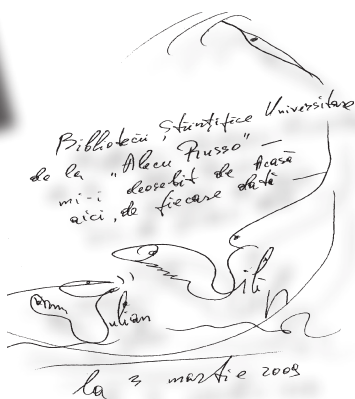 Bibliotecii Științifice Universitare
de la "Alecu Russo" —
mi-i deosebit de Acasă
aici, de fiecare dată —
Iulian Filip
la 3 martie 2009